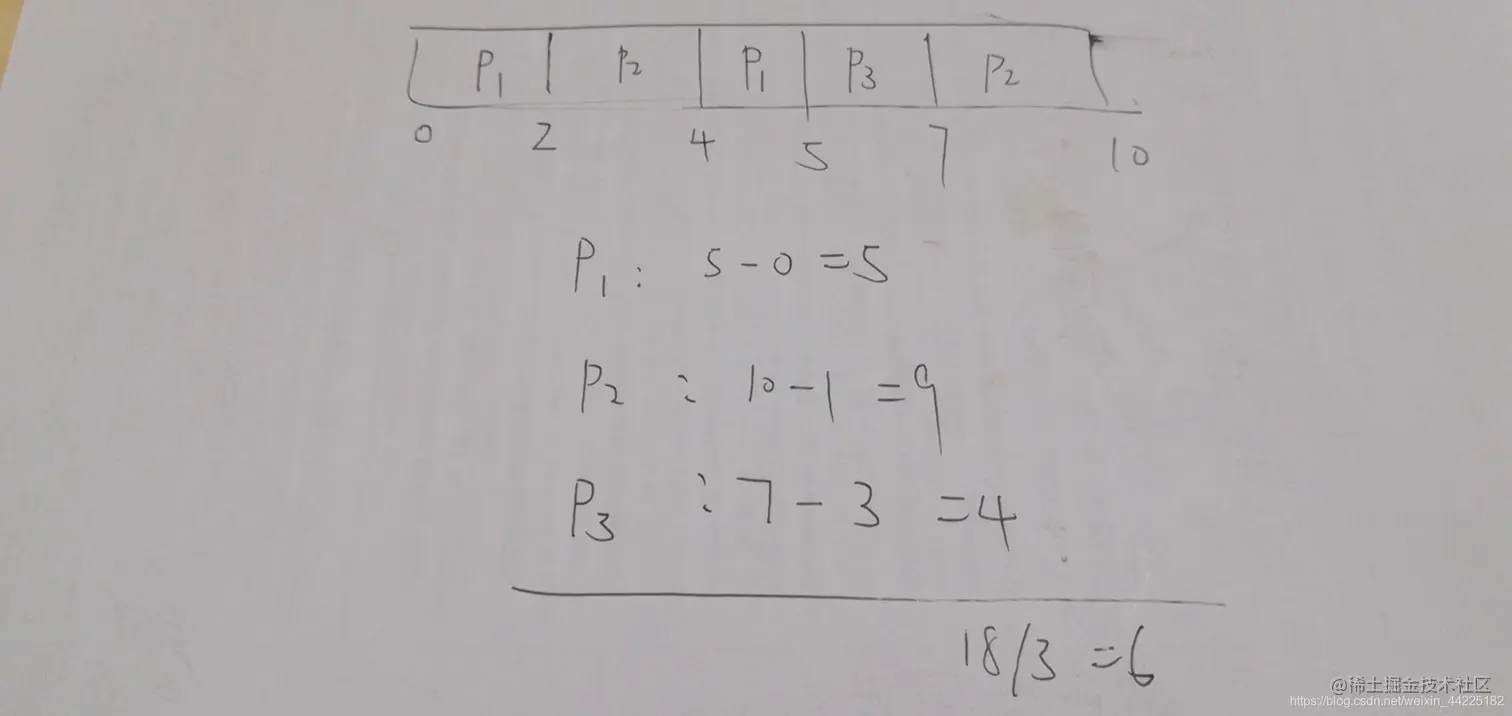 P1 P2 P1 P3 P2
0 2 4 5 7 10
P1: 5-0=5
P2: 10-1=9
P3: 7-3=4
18/3=6
@稀土掘金技术社区
https://blog.csdn.net/weixin_44225182